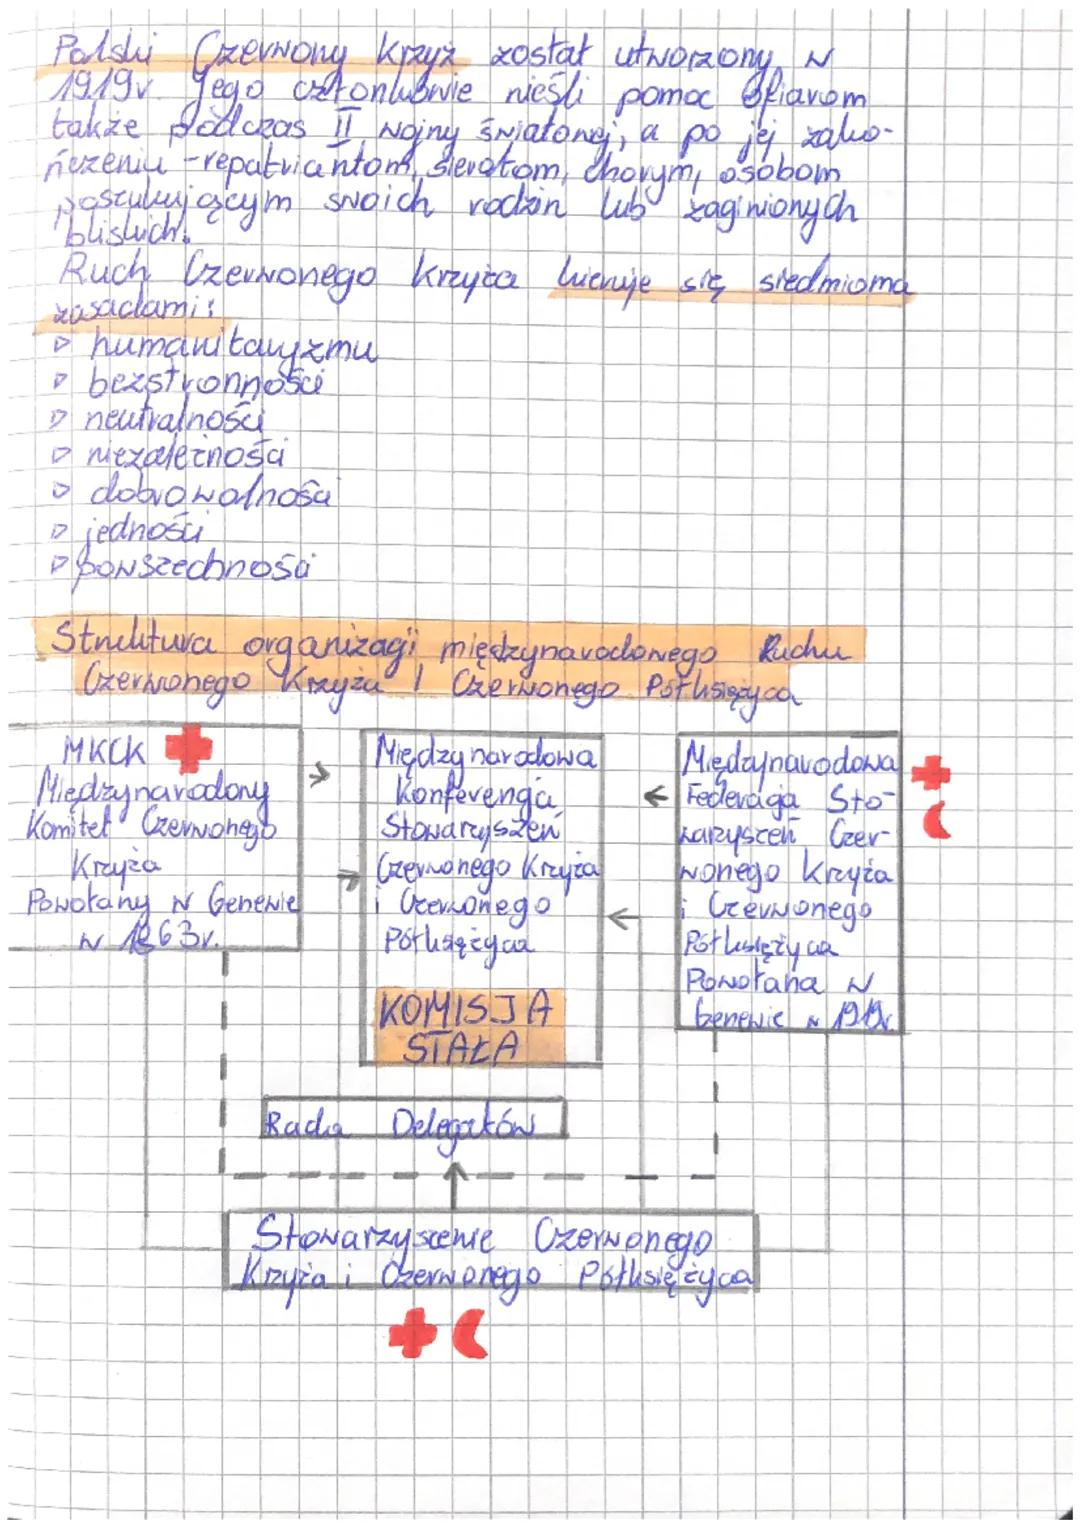 Polski Czerwony Krzyż został utworzony w
1919r. Jego członkowie nieśli pomoc ofiarom
także podczas II wojny światowej, a po jej zako-
ńczeniu - repatriantom, sierotom, chorym, osobom
poszukującym swoich rodzin lub zaginionych
bliskich.
Ruch Czerwonego Krzyża kieruje się siedmioma
zasadami:
▷ humanitaryzmu
▷ bezstronności
▷ neutralności
▷ niezależności
▷ dobrowolności
▷ jedności
▷ powszechności
Struktura organizacji międzynarodowego Ruchu
Czerwonego Krzyża i Czerwonego Półksiężyca
MKCK
Międzynarodony
Komitet Czerwonego
Krzyża
Powołany w Genewie
w 1863r.
Międzynarodowa
Konferencja
Stowarzyszeń
Czerwonego Krzyża
i Czerwonego
Półksiężyca
KOMISJA
STAŁA
Międzynarodowa
Federacja Sto-
warzyszeń Czer-
wonego Krzyża
i Czerwonego
Półksiężyca
Powołana w
Genewie w 1919r.
Rada Delegatów
Stowarzyszenie Czerwonego
Krzyża i Czerwonego Półksiężyca